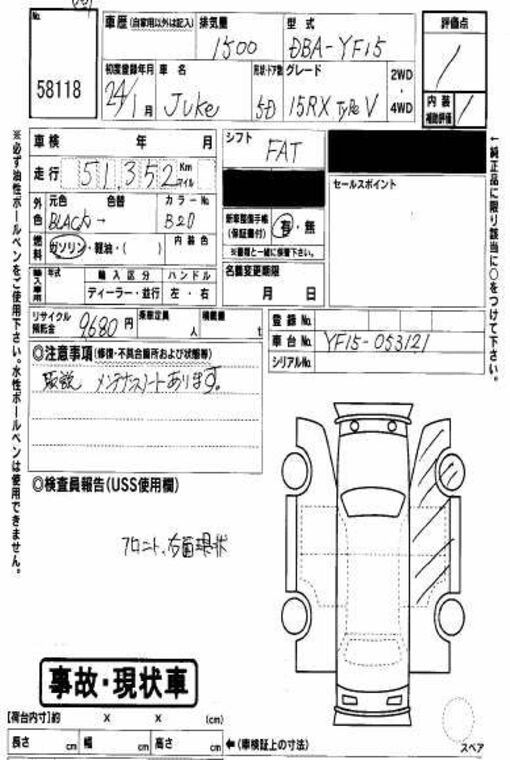 No.
58118
車歴 (自家用以外は記入)
排気量
1500
型式
DBA-YF15
評価点
/
初度登録年月
24/1月
車名
Juke
形状・ドア数
5D
グレード
15RX TYPE V
2WD
・
4WD
内装
補助評価
/
車検 年 月
走行 51,352 Km マイル
シフト
FAT
セールスポイント
外色
元色 色替
BLACK →
カラーNo.
B20
燃料
ガソリン・軽油・( )
内装色
新車整備手帳
(保証書付)
有・無
※書類と一緒に接着下さい。
輸入車用
年式
輸入区分
ディーラー・並行
ハンドル
左・右
名義変更期限
月 日
リサイクル
預託金
9,680円
乗車定員
人
積載量
t
登録No.
車台No. YF15-053121
シリアルNo.
◎注意事項 (修復・不具合箇所および状態等)
取説 メンテナンスノートあります。
◎検査員報告(USS使用欄)
フロント、右面現状
事故・現状車
【荷台内寸】約 × × (cm)
長さ cm 幅 cm 高さ cm ←(車検証上の寸法)
スペア
※必ず油性ボールペンをご使用下さい。水性ボールペンは使用できません。
←純正品に限り該当に○をつけて下さい。